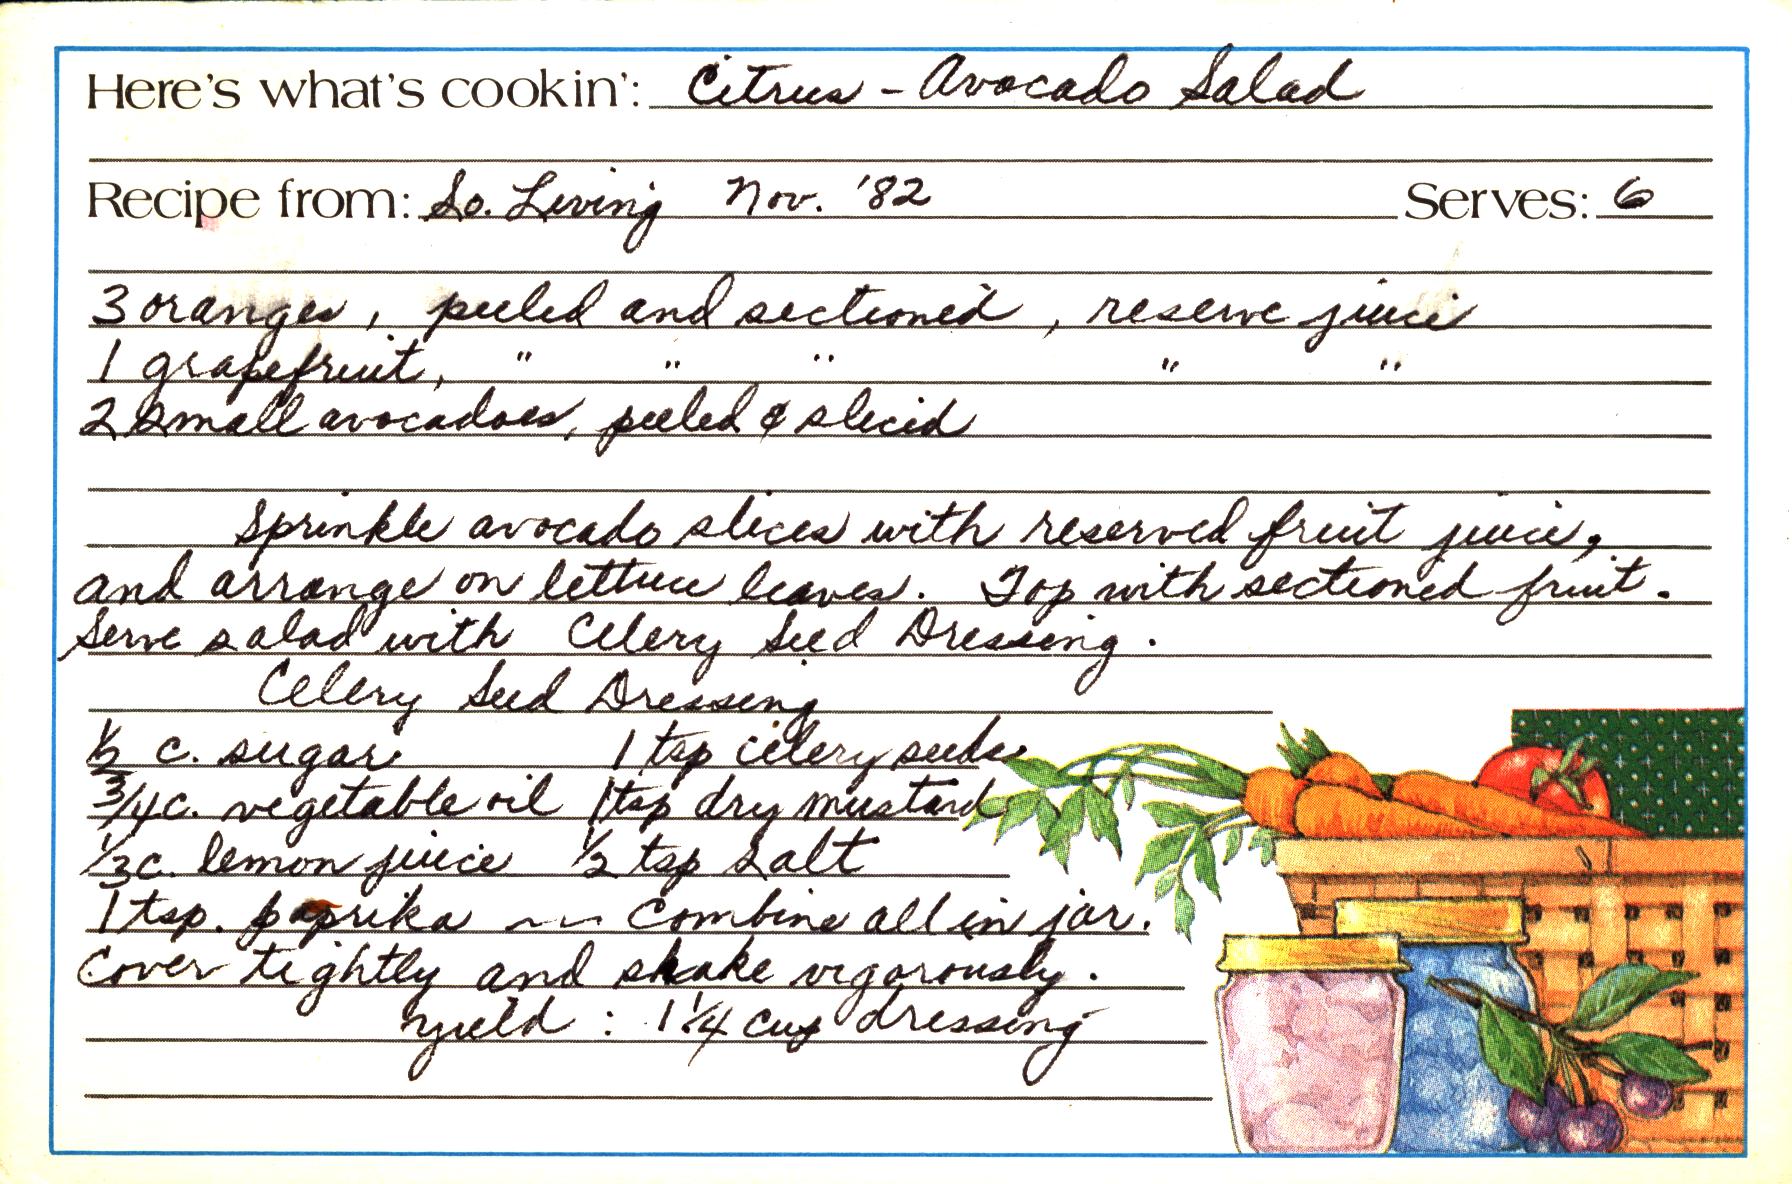 Here's what's cookin': Citrus - Avocado Salad
Recipe from: So. Living Nov. '82 Serves: 6
3 oranges, peeled and sectioned, reserve juice
1 grapefruit, " " " " "
2 small avocadoes, peeled & sliced
Sprinkle avocado slices with reserved fruit juice,
and arrange on lettuce leaves. Top with sectioned fruit.
Serve salad with Celery Seed Dressing.
Celery Seed Dressing
c. sugar 1 tsp celery seeds
3/4 c. vegetable oil 1 tsp dry mustard
1/3 c. lemon juice 1/2 tsp salt
1 tsp. paprika ~~ Combine all in jar.
Cover tightly and shake vigorously.
Yield : 1 1/4 cup dressing